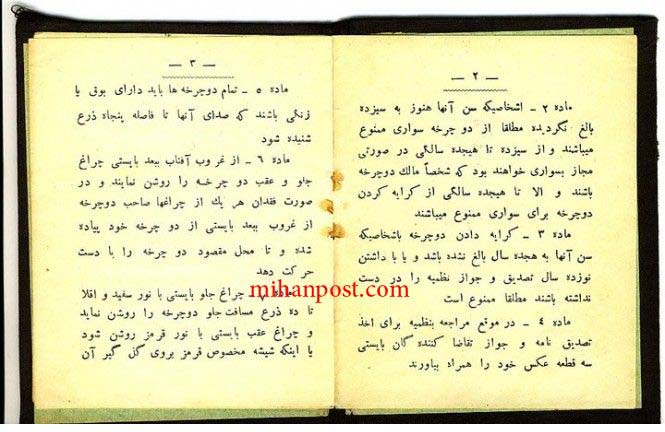 — ۲ —
ماده ۲ ـ اشخاصیکه سن آنها هنوز به سیزده
بالغ نگردیده مطلقا از دو چرخه سواری ممنوع
میباشند و از سیزده تا هیجده سالگی در صورتی
مجاز بسواری خواهند بود که شخصاً مالك دوچرخه
باشند و الا تا هیجده سالگی از کرایه کردن
دوچرخه برای سواری ممنوع میباشند
ماده ۳ ـ کرایه دادن دوچرخه باشخاصیکه
سن آنها به هجده سال بالغ نشده باشد و یا با داشتن
نوزده سال تصدیق و جواز نظمیه را در دست
نداشته باشند مطلقا ممنوع است
ماده ٤ ـ در موقع مراجعه بنظمیه برای اخذ
تصدیق نامه و جواز تقاضا کننده گان بایستی
سه قطعه عکس خود را همراه بیاورند
— ۳ —
ماده ٥ ـ تمام دوچرخه ها باید دارای بوق یا
زنگی باشند که صدای آنها تا فاصله پنجاه ذرع
شنیده شود
ماده ٦ ـ از غروب آفتاب ببعد بایستی چراغ
جلو و عقب دو چرخه را روشن نمایند و در
صورت فقدان هر یك از چراغها صاحب دوچرخه
از غروب ببعد بایستی از دو چرخه خود پیاده
شده و تا محل مقصود دو چرخه را با دست
حرکت دهد
ماده چراغ جلو بایستی با نور سفید و اقلا
تا ده ذرع مسافت جلو دوچرخه را روشن نماید
و چراغ عقب بایستی با نور قرمز روشن شود
یا اینکه شیشه مخصوص قرمز بروی گل گیر آن
mihanpost.com